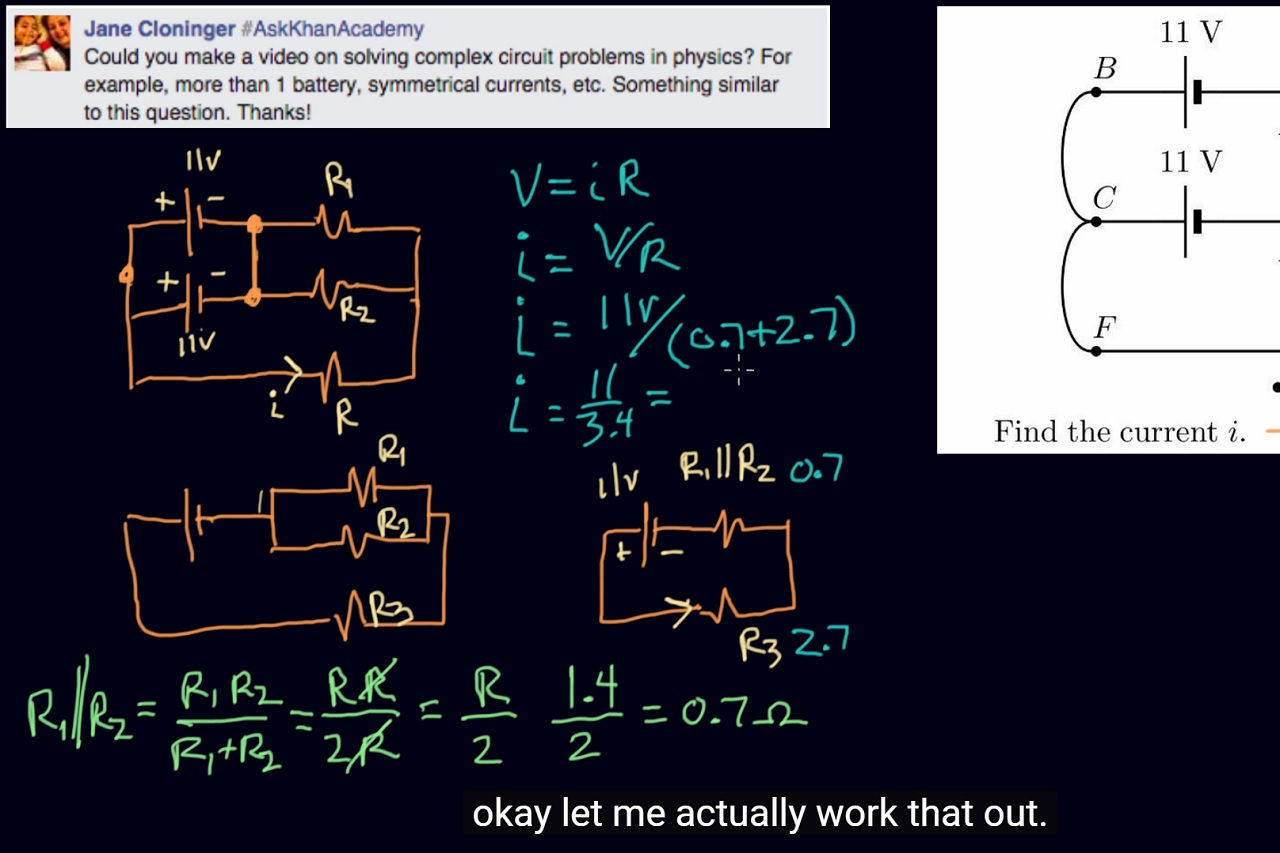 Jane Cloninger #AskKhanAcademy
Could you make a video on solving complex circuit problems in physics? For
example, more than 1 battery, symmetrical currents, etc. Something similar
to this question. Thanks!
11 V
B
11 V
C
F
Find the current i.
11v
+ -
R1
+ -
R2
11v
i
R
V = iR
i = V/R
i = 11v/(0.7+2.7)
i = 11/3.4 =
R1
R2
R3
11v
R1||R2 0.7
+ -
R3 2.7
R1||R2 = R1 R2/R1+R2 = RR/2R = R/2 1.4/2 = 0.7Ω
okay let me actually work that out.